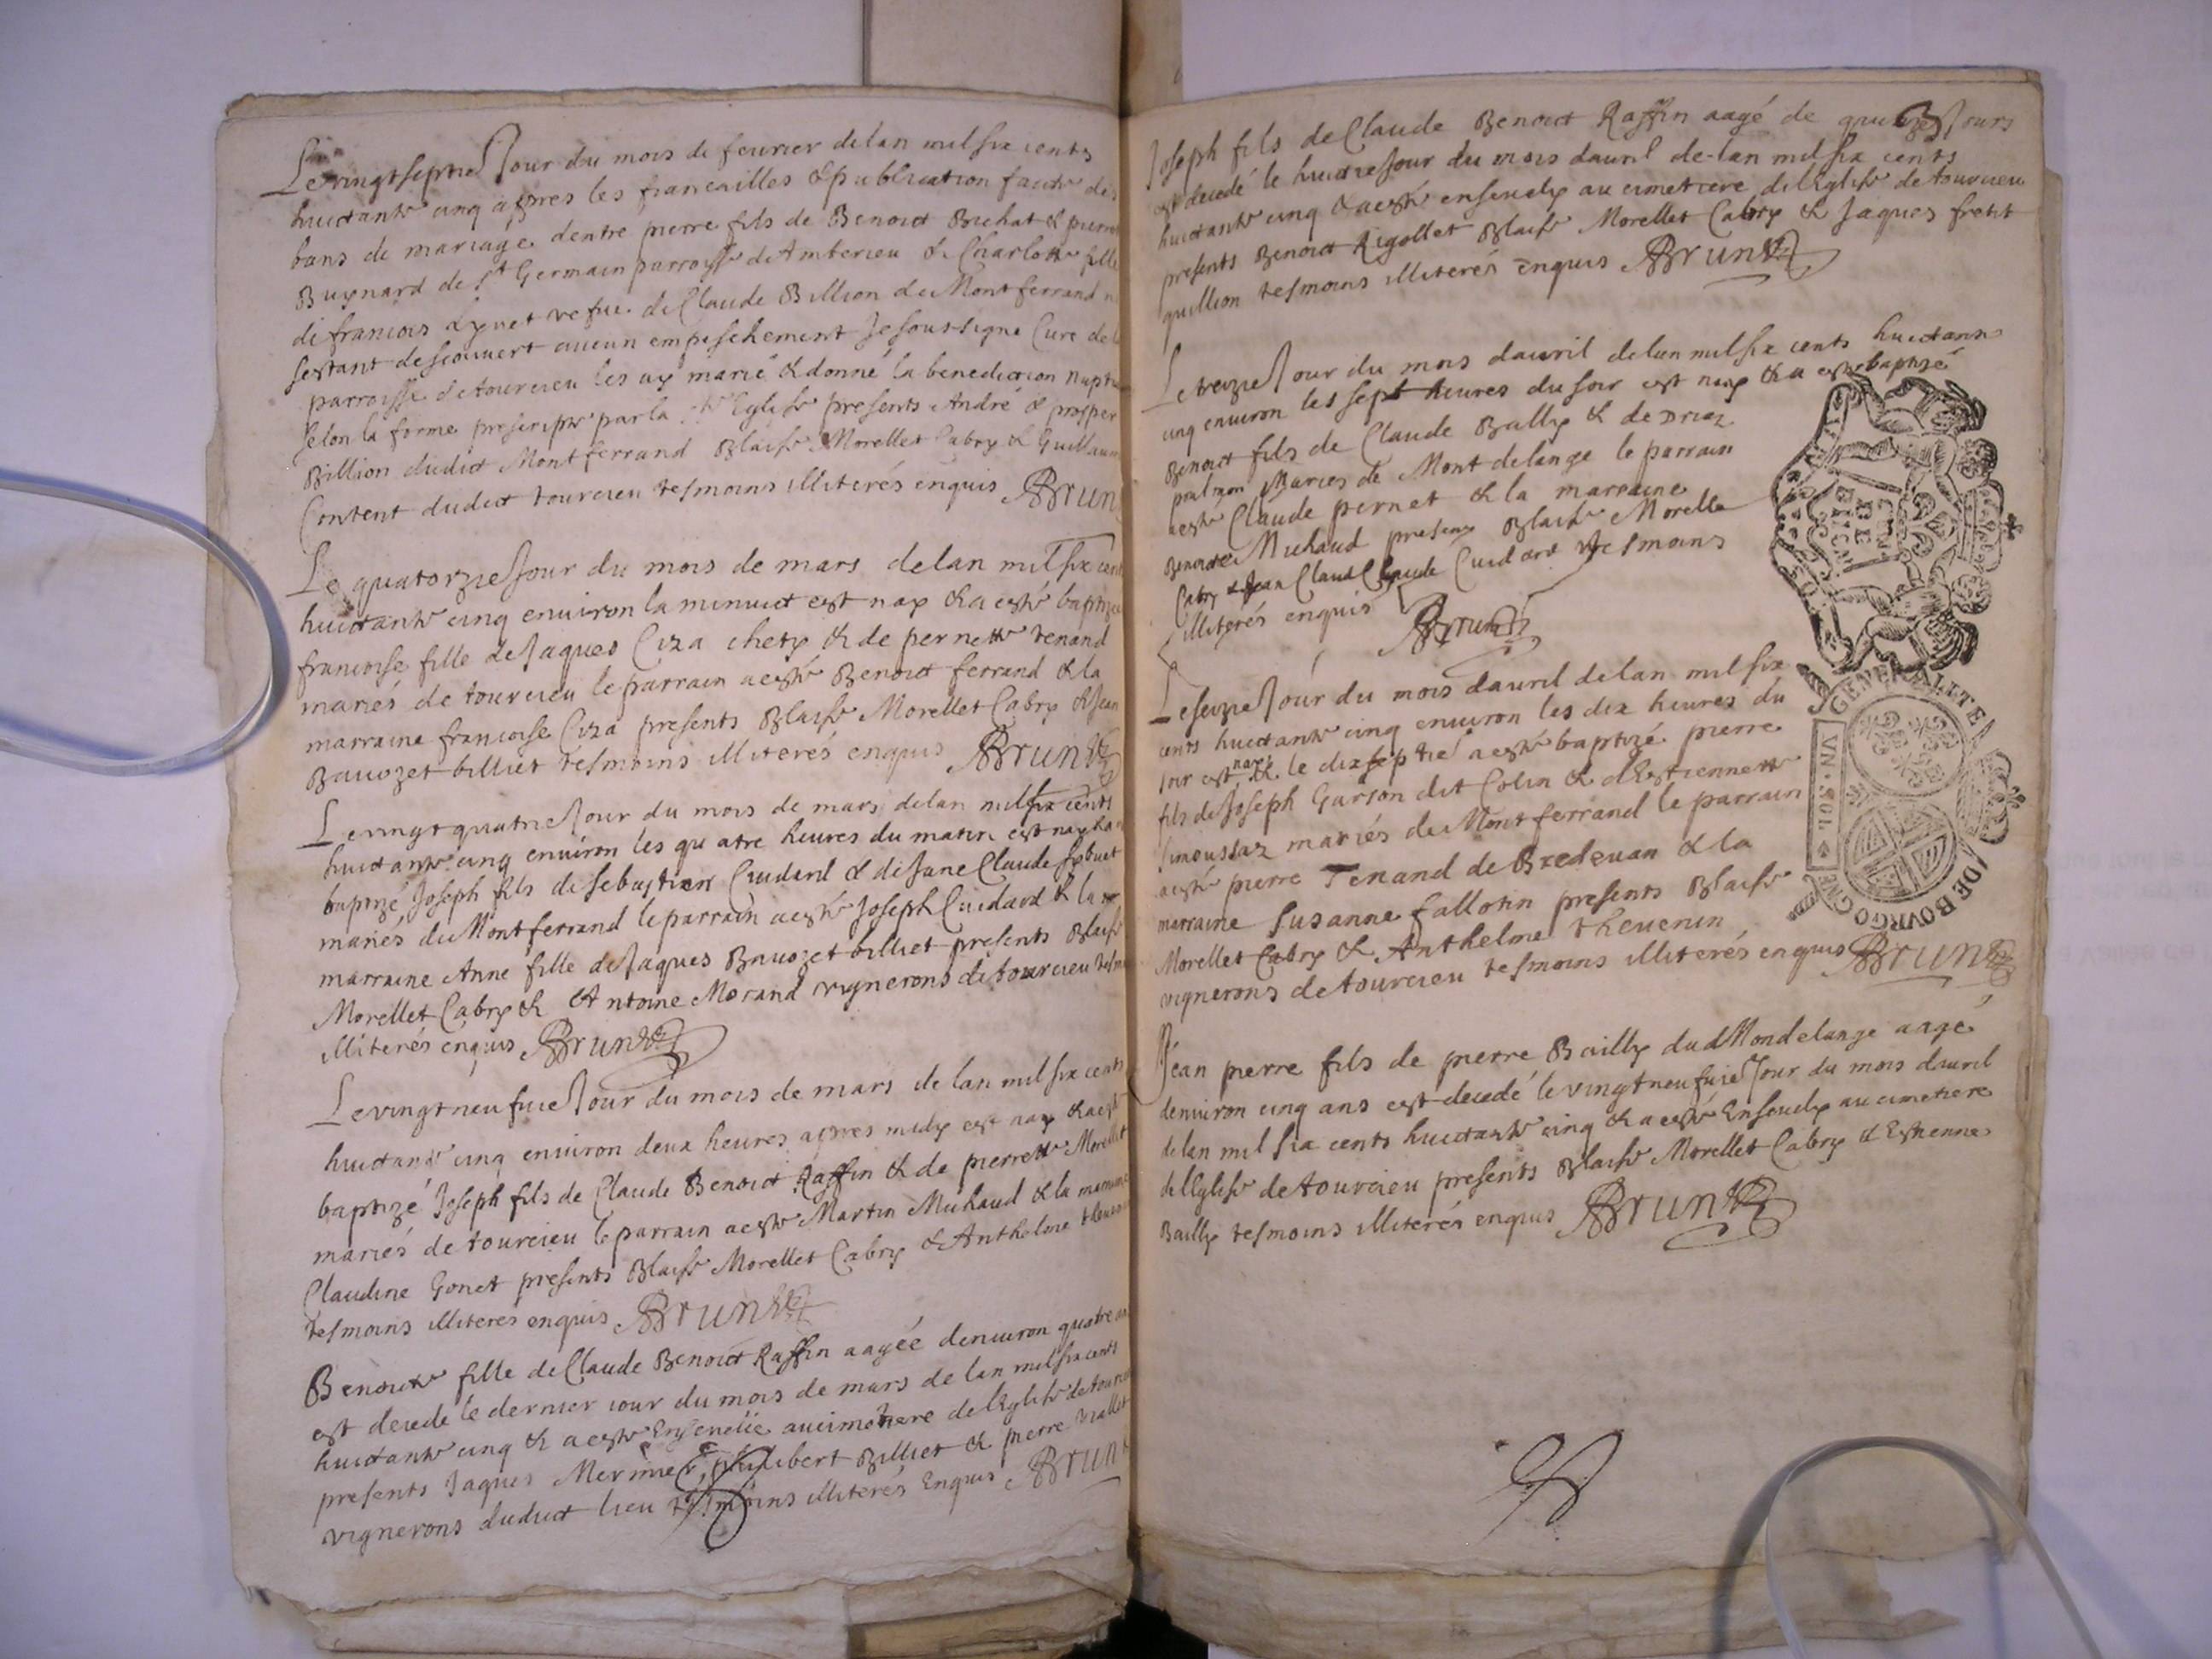 Le vingt septie Jour du mois de feurier de lan mil six cents
huictante cinq apres les fiancailles & publication faicte des
bans de mariage dentre pierre fils de Benoict Bichat & pierre
Buynard de St Germain parroisse de Amberieu & Charlotte fille
de francois Lynet vefue de Claude Billion de Montferrand n
sestant descouuert aucun empeschement Je soussigne Cure de la
parroisse de tourcieu les ay marié & donné la benediction nupti
selon la forme prescripte par la Ste Eglise presents André & prosper
Billion dudict Montferrand Blaise Morellet Cabry & Guillaum
Content dudict tourcieu tesmoins illiterés enquis Brun
Le quatorzie Jour du mois de mars de lan mil six cent
huictante cinq enuiron la minuict est nay & a esté baptizé
francoise fille de Jaques Ciza chety & de pernette tenand
mariés de tourcieu le parrain a esté Benoict ferrand & la
marraine francoise Ciza presents Blaise Morellet Cabry & Jean
Bauozet billiet tesmoins illiterés enquis Brun
Le vingt quatrie Jour du mois de mars de lan mil six cents
huictante cinq enuiron les quatre heures du matin est nay & a
baptizé Joseph fils de sebastien Cuidard & de Jane Claude
mariés du Montferrand le parrain a esté Joseph Cuidard & la
marraine Anne fille de Jaques Bauozet billiet presents Blaise
Morellet Cabry & Antoine Morand vignerons de tourcieu tesm
illiterés enquis Brun
Le vingt neufuie Jour du mois de mars de lan mil six cents
huictante cinq enuiron deux heures apres midy est nay & a esté
baptizé Joseph fils de Claude Benoict Raffin & de pierrette Morellet
mariés de tourcieu le parrain a esté Martin Michaud & la marraine
Claudine Gonet presents Blaise Morellet Cabry & Anthelme theuenin
tesmoins illiterés enquis Brun
Benoicte fille de Claude Benoict Raffin aagée denuiron quatre an
est decede le dernier iour du mois de mars de lan mil six cents
huictante cinq & a esté Enseuelie au cimetiere de leglise de tourcieu
presents Jaques Mermet, philibert Billiet & pierre Viallet
vignerons dudict lieu tesmoins illiterés Enquis Brun
Joseph fils de Claude Benoict Raffin aagé de quinze Jours
est decedé le huictie Jour du mois dauril de lan mil six cents
huictante cinq & a esté enseuely au cimetiere de leglise de tourcieu
presents Benoict Rigollet Blaise Morellet Cabry & Jaques fretit
quillion tesmoins illiterés Enquis Brun
Le treizie Jour du mois dauril de lan mil six cents huictante
cinq enuiron les sept heures du soir est nay & a esté baptizé
Benoict fils de Claude Bally & de
Mariés de Mont de lange le parrain
a esté Claude pernet & la marraine
Benoicte Michaud presens Blaise Morelle
Cabry & Jean Claude Cuidard tesmoins
illiterés enquis Brun
Le seizie Jour du mois dauril de lan mil six
cents huictante cinq enuiron les dix heures du
soir est nay & le dixseptié a esté baptizé pierre
fils de Joseph Garson dit Colin & dEstiennette
simoussaz mariés de Montferrand le parrain
a esté pierre Tenand de Bredeuan & la
marraine Susanne fallotin presents Blaise
Morellet Cabry & Anthelme theuenin
vignerons de tourcieu tesmoins illiterés enquis Brun
Jean pierre fils de pierre Bailly dud Mondelange aagé
denuiron cinq ans est decedé le vingt neufuie Jour du mois dauril
de lan mil six cents huictante cinq & a esté Enseuely au cimetiere
de leglise de tourcieu presents Blaise Morellet Cabry & Estienne
Bailly tesmoins illiterés enquis Brun
GENERALITE
VN·SOL
DE BOVRGOGNE